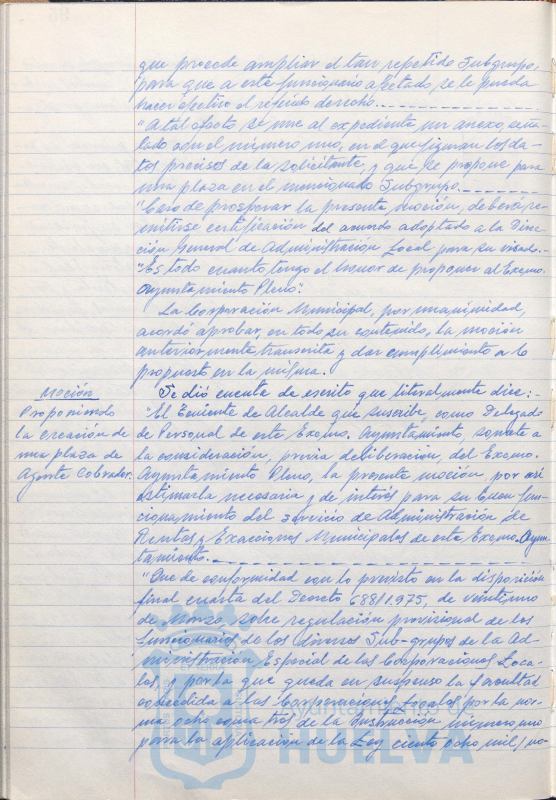 que procede ampliar el tan repetido Subgrupo,
para que a este funcionario afectado, se le pueda
hacer efectivo el referido derecho.
"A tal efecto se une al expediente, un anexo, seña-
lado con el número uno, en el que figuran los da-
tos precisos de la solicitante, y que se propone para
una plaza en el mencionado Subgrupo.
"Caso de prosperar la presente moción, deberá re-
mitirse certificación del acuerdo adoptado a la Direc-
ción General de Administración Local para su visado.-
"Es todo cuanto tengo el honor de proponer al Excmo.
Ayuntamiento Pleno".
La Corporación Municipal, por unanimidad,
acordó aprobar, en todo su contenido, la moción
anteriormente transcrita y dar cumplimiento a lo
propuesto en la misma.
Moción
Proponiendo
la creación de
una plaza de
Agente Cobrador.
Se dió cuenta de escrito que literalmente dice:-
"El Teniente de Alcalde que suscribe, como Delegado
de Personal de este Excmo. Ayuntamiento, somete a
la consideración, previa deliberación, del Excmo.
Ayuntamiento Pleno, la presente moción, por así
estimarla necesaria y de interés para su buen fun-
cionamiento del servicio de Administración de
Rentas y Exacciones Municipales de este Excmo. Ayun-
tamiento.
"Que de conformidad con lo previsto en la disposición
final cuarta del Decreto 688/1.975, de veintiuno
de Marzo, sobre regulación provisional de los
funcionarios de los diversos Sub-grupos de la Ad-
ministración Especial de las Corporaciones Loca-
les, y por la que queda en suspenso la facultad
concedida a las Corporaciones Locales por la nor-
ma ocho coma tres de la Instrucción número uno
para la aplicación de la Ley ciento ocho mil/no-
Ayuntamiento de
HUELVA